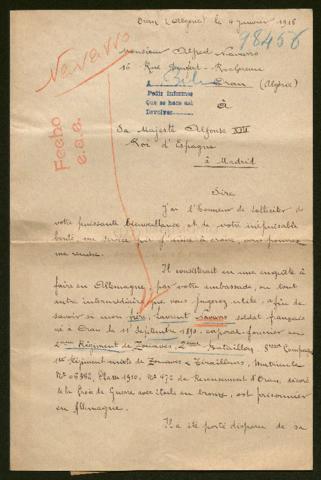 Oran (Algérie) le 4 janvier 1918
98456
Navarro
Monsieur Alfred Navarro
16 Rue
Oran (Algérie)
Pedir informes
Que se hace así
Devolver
à
Sa Majesté Alfonse XIII
Roi d'Espagne
à Madrid
Fecho
Sire
J'ai l'honneur de solliciter de
votre puissante bienveillance, et de votre inépuisable
bonté un service que j'aime à croire, vous pourrez
me rendre.
Il consisterait en une enquête à
faire en Allemagne, par votre ambassade, ou tout
autre intermédiaire que vous jugerez utile, afin de
savoir si mon frère, Laurent Navarro soldat français
né à Oran le 11 Septembre 1890, caporal-fourrier en
2ème Régiment de Zouaves, 2ème Bataillon, Compagnie
1er Régiment mixte de Zouaves & Tirailleurs, Matricule
Classe 1910, Nº 472 de Recensement d'Oran, décoré
de la Croix de Guerre avec étoile en bronze, est prisonnier
en Allemagne.
Il a été porté disparu de sa